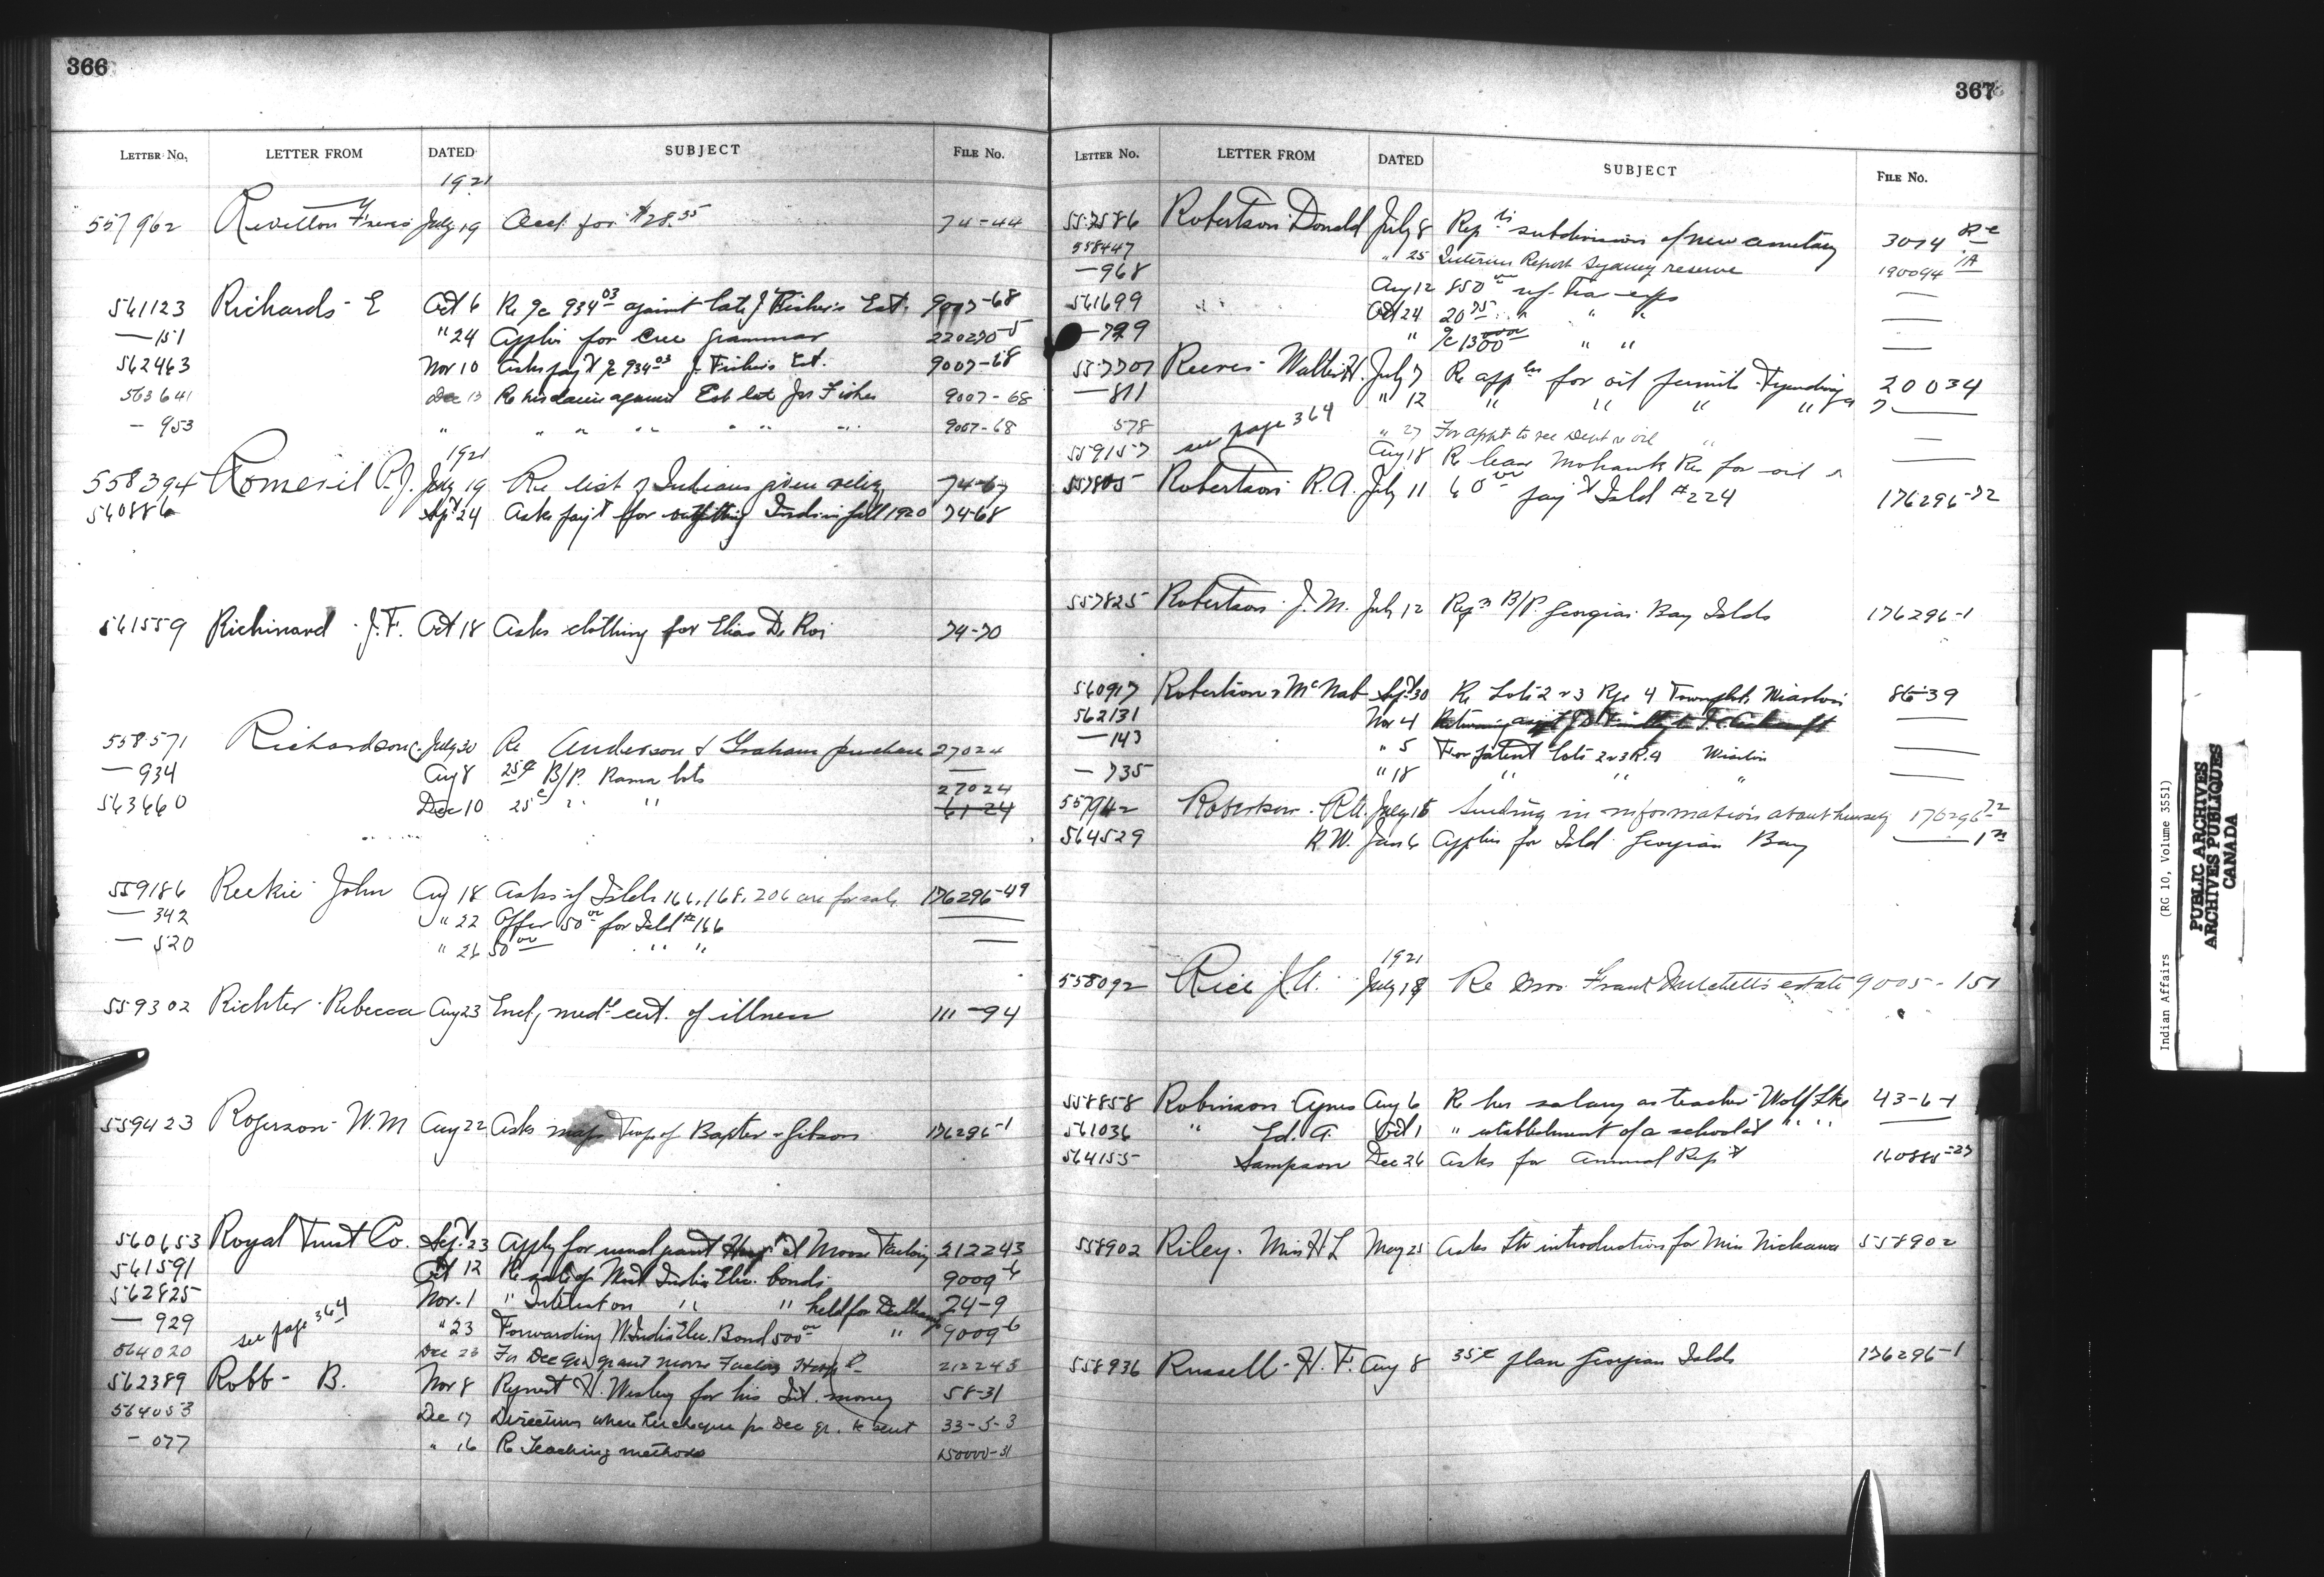 366
LETTER NO. LETTER FROM DATED SUBJECT FILE No.
1921
557962 Revillon Freres July 19 Acct for $28.55 74-44
561123 Richards - E Oct 6 Re a/c 934.03 against late J Fisher's Est. 9007-68
— 151 " 24 Applies for Cree grammar 220270-5
562463 Nov 10 Asks pay't a/c 934.03 J. Fisher's Est. 9007-68
563641 Dec 13 Re his claim against Est late Jas Fisher 9007-68
- 953 " " " " " " " 9007-68
1921
558394 Romeril P.J. July 19 Re list of Indians given relief 74-67
560886 Sept 24 Asks pay't for outfitting Indians fall 1920 74-68
561559 Richinard - J.F. Oct 18 Asks clothing for Elias De Roi 74-70
558571 Richardson C. July 30 Re Anderson & Graham purchase 27024
— 934 Aug 8 25¢ B/P. Rama lots —
563660 Dec 10 25¢ " " 27024 61-24
559186 Reekie John Aug 18 Asks if Islds 166, 168, 206 are for sale 176296-49
— 342 " 22 Offer 50.00 for Isld # 166 —
— 520 " 26 50.00 " " —
559302 Richter - Rebecca Aug 23 Encl, med. cert. of illness 111-94
559423 Rogerson - W.M Aug 22 Asks maps Twps of Baxter & Gibson 176296-1
560653 Royal Trust Co. Sept 23 Apply for usual grant Hosp'l at Moose Factory 212243
561591 Oct 12 Re sale of West India Elec. bonds 9009-6
562825 Nov. 1 " Interest on " " held for 24-9
— 929 see page 364 " 23 Forwarding W. India Elec. Bond 500.00 " 9009-6
564020 Dec 23 For Dec qr grant Moose Factory Hosp'l 212243
562389 Robb - B. Nov 8 Request W. Wesley for his Int. money 58-31
564053 Dec 17 Directions where her cheque for Dec qr. to be sent 33-5-3
- 077 " 16 Re Teaching methods 150000-31
367
LETTER NO. LETTER FROM DATED SUBJECT FILE No.
557586 Robertson Donald July 8 Rep'ts subdivision of new cemetery 3074
558447 " 25 Interim Report Sydney reserve 190094
— 968 Aug 12 850.00 ref. trav exps —
561699 " Oct 24 20.75 " " " —
— 799 " a/c 1300 " " —
557707 Reeves - Walter H. July 7 Re app'ln for oil permits - Tyendinaga 20034
— 811 " 12 " " " " —
578 see page 364 " 27 For appt to see Dept re oil " —
559157 Aug 18 Re lease Mohawk Res for oil —
557805 Robertson R.A. July 11 60.00 pay't Isld #224 176296-72
557825 Robertson J.M. July 12 Req'n B/P. Georgian Bay Islds 176296-1
560917 Robertson & McNab Sept 30 Re Lots 2 & 3 Rge 4 Townplot, Wiarton 86-39
562131 Nov 4 —
— 143 " 5 For patent lots 2 & 3 R. 4 Wiarton —
— 735 " 18 " " " —
557942 Robertson - R.A. July 15 Sending in information about himself 176296-72
564529 R.W. Jan 6 Applies for Isld Georgian Bay —
1921
558092 Rice J.A. July 18 Re Mrs. Frank Mitchell's estate 9005-151
558858 Robinson Agnes Aug 6 Re her salary as teacher - Wolf Lke 43-6-1
561036 " Ed. A. Oct 1 " establishment of a school at " " —
564155 Sampson Dec 26 Asks for Annual Rep't 160885-27
558902 Riley. Miss H L May 25 Asks Ltr introduction for Miss Nickawa 558902
558936 Russell - H. F. Aug 8 35¢ plan Georgian Islds 176296-1
Indian Affairs (RG 10, Volume 3551)
PUBLIC ARCHIVES
ARCHIVES PUBLIQUES
CANADA